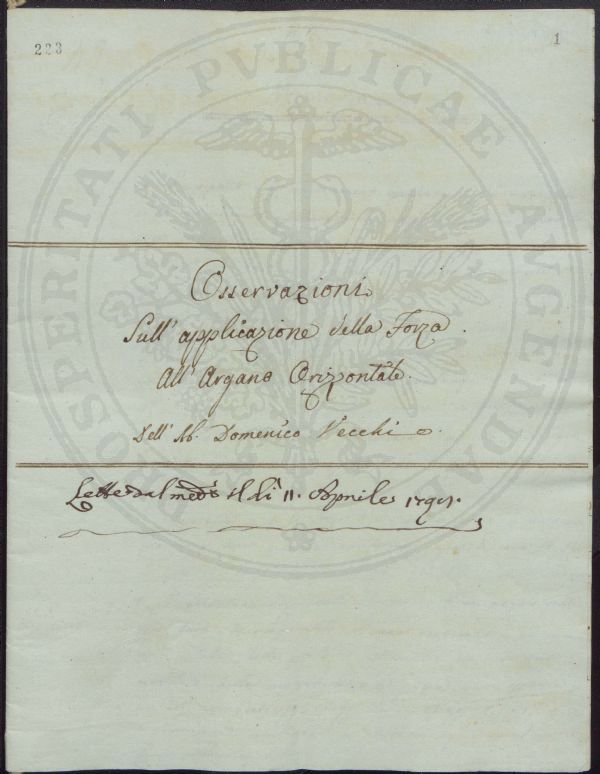 223
1
PROSPERITATI PVBLICAE AVGENDAE
Osservazioni
Sull' applicazione della Forza
All' Argano Orizontale.
Dell' Ab. Domenico Vecchi
Lette dal med.º il dì 11. Aprile